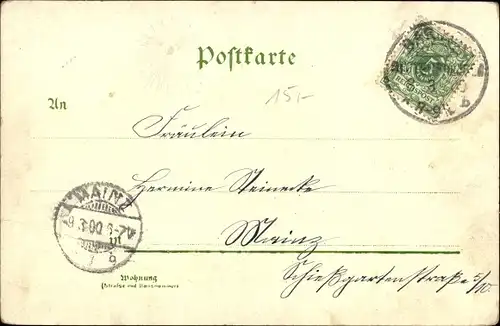 Postkarte
15,-
An
Fräulein
Hermine Steinecke
Mainz
Schießgartenstraße 5/10
Wohnung
(Straße und Hausnummer)
MAINZ
6.3.00 6-7